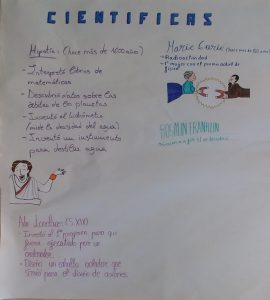 CIENTIFICAS
Hipatia: (hace más de 1600 años)
- Interpretó libros de
matemáticas
- Descubrió datos sobre las
órbitas de los planetas
- Inventó el hidrómetro
(mide la densidad del agua)
- Inventó un instrumento
para destilar agua
Marie Curie (hace más de 150 años)
- Radioactividad
- 1ª mujer con el premio nobel de
física
ROSALIN FRANKLIN
Ada Lovelace (S. XIX)
- Inventó el 1er programa para que
fuera ejecutado por un
ordenador.
- Diseñó un caballo volador que
sirvió para el diseño de aviones.